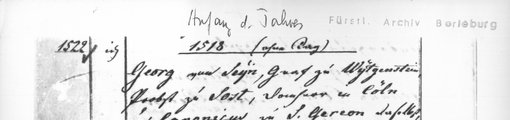 Anfang d. Jahres
Fürstl. Archiv Berleburg
1522 ich 1518 (ohne Tag)
Georg von Seyn, Graf zu Wytgenstein,
Probst zu Sost, Domherr in Cöln
Canonicus zu S. Gereon daselbst